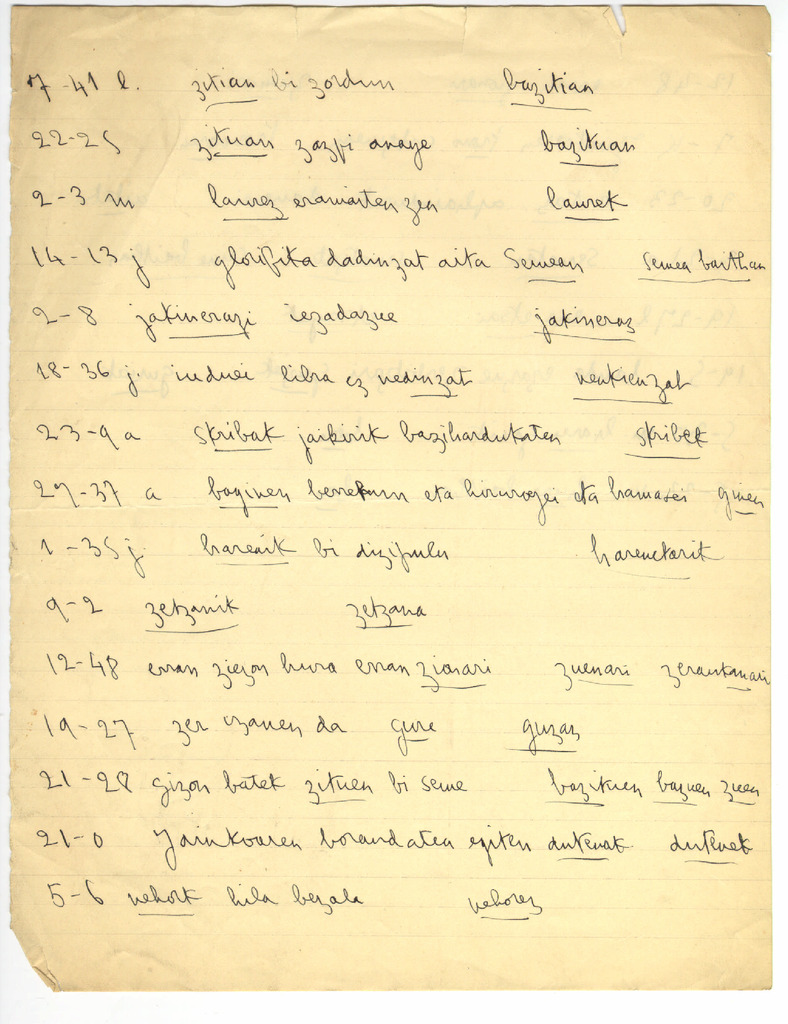 7-41 l. zitian bi zordun bazitian
22-25 zituan zazpi anaye bazituan
2-3 m laurez eramaiten zen laurek
14-13 j glorifika dadinzat aita Semean semea baithan
2-8 jakinerazi iezadazue jakineraz
18-36 j iuduei libra ez nedinzat
23-9 a skribak jaikirik bazihardukaten skribek
27-37 a baginen berrehun eta hirurogei eta hamasei ginen
1-35 j harenik bi dizipulu harenetarik
9-2 zetzanik zetzana
12-48 erran ziezon hura erran zionari zuenari zeraukanari
19-27 zer izanen da gure guzaz
21-28 gizon batek zituen bi seme bazituen bazuen zuen
21-0 Jainkoaren borondatea egiten dutenak dutenek
5-6 nehork hila bezala nehorez